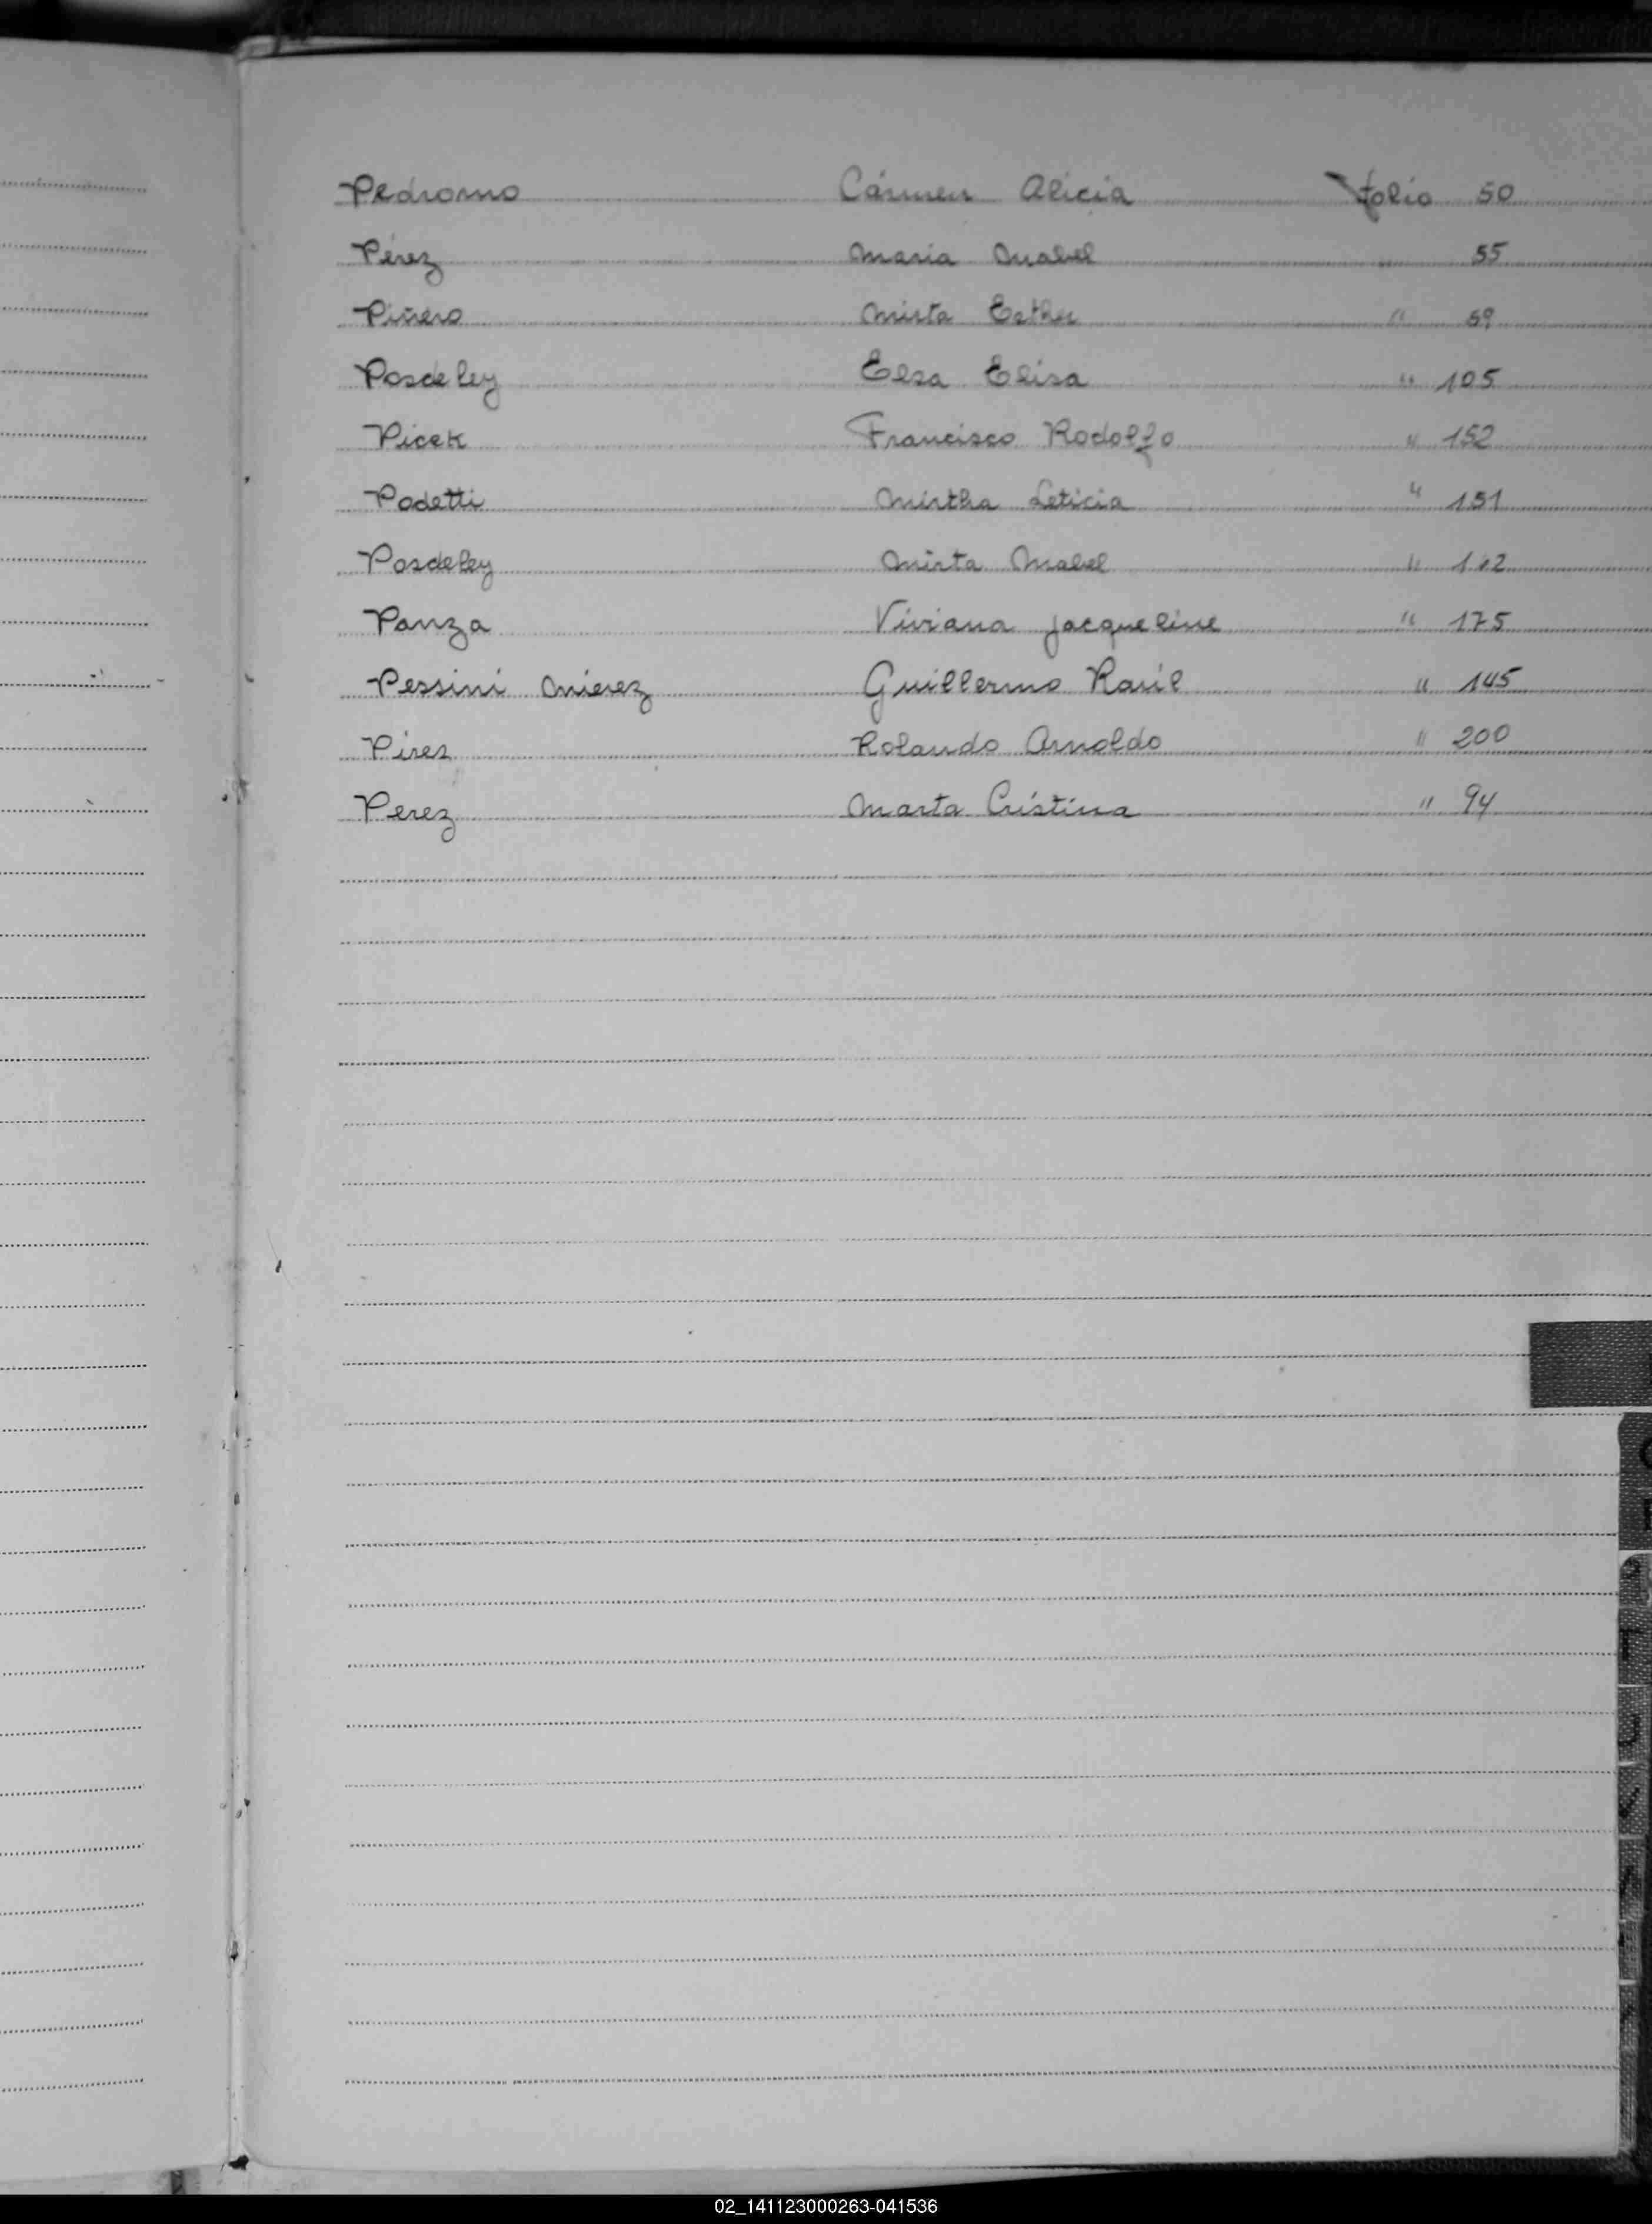 Pedromo Cármen Alicia folio 50
Pérez Maria Mabel " 55
Piñero Mirta Esther " 59
Posdeley Elsa Elisa " 105
Picek Francisco Rodolfo " 152
Podetti Mirtha Leticia " 151
Posdeley Mirta Mabel "
Panza Viviana Jacqueline " 175
Pessini Mierez Guillermo Raúl " 145
Pires Rolando Arnoldo " 200
Perez Marta Cristina " 94
T
U
V
02_141123000263-041536